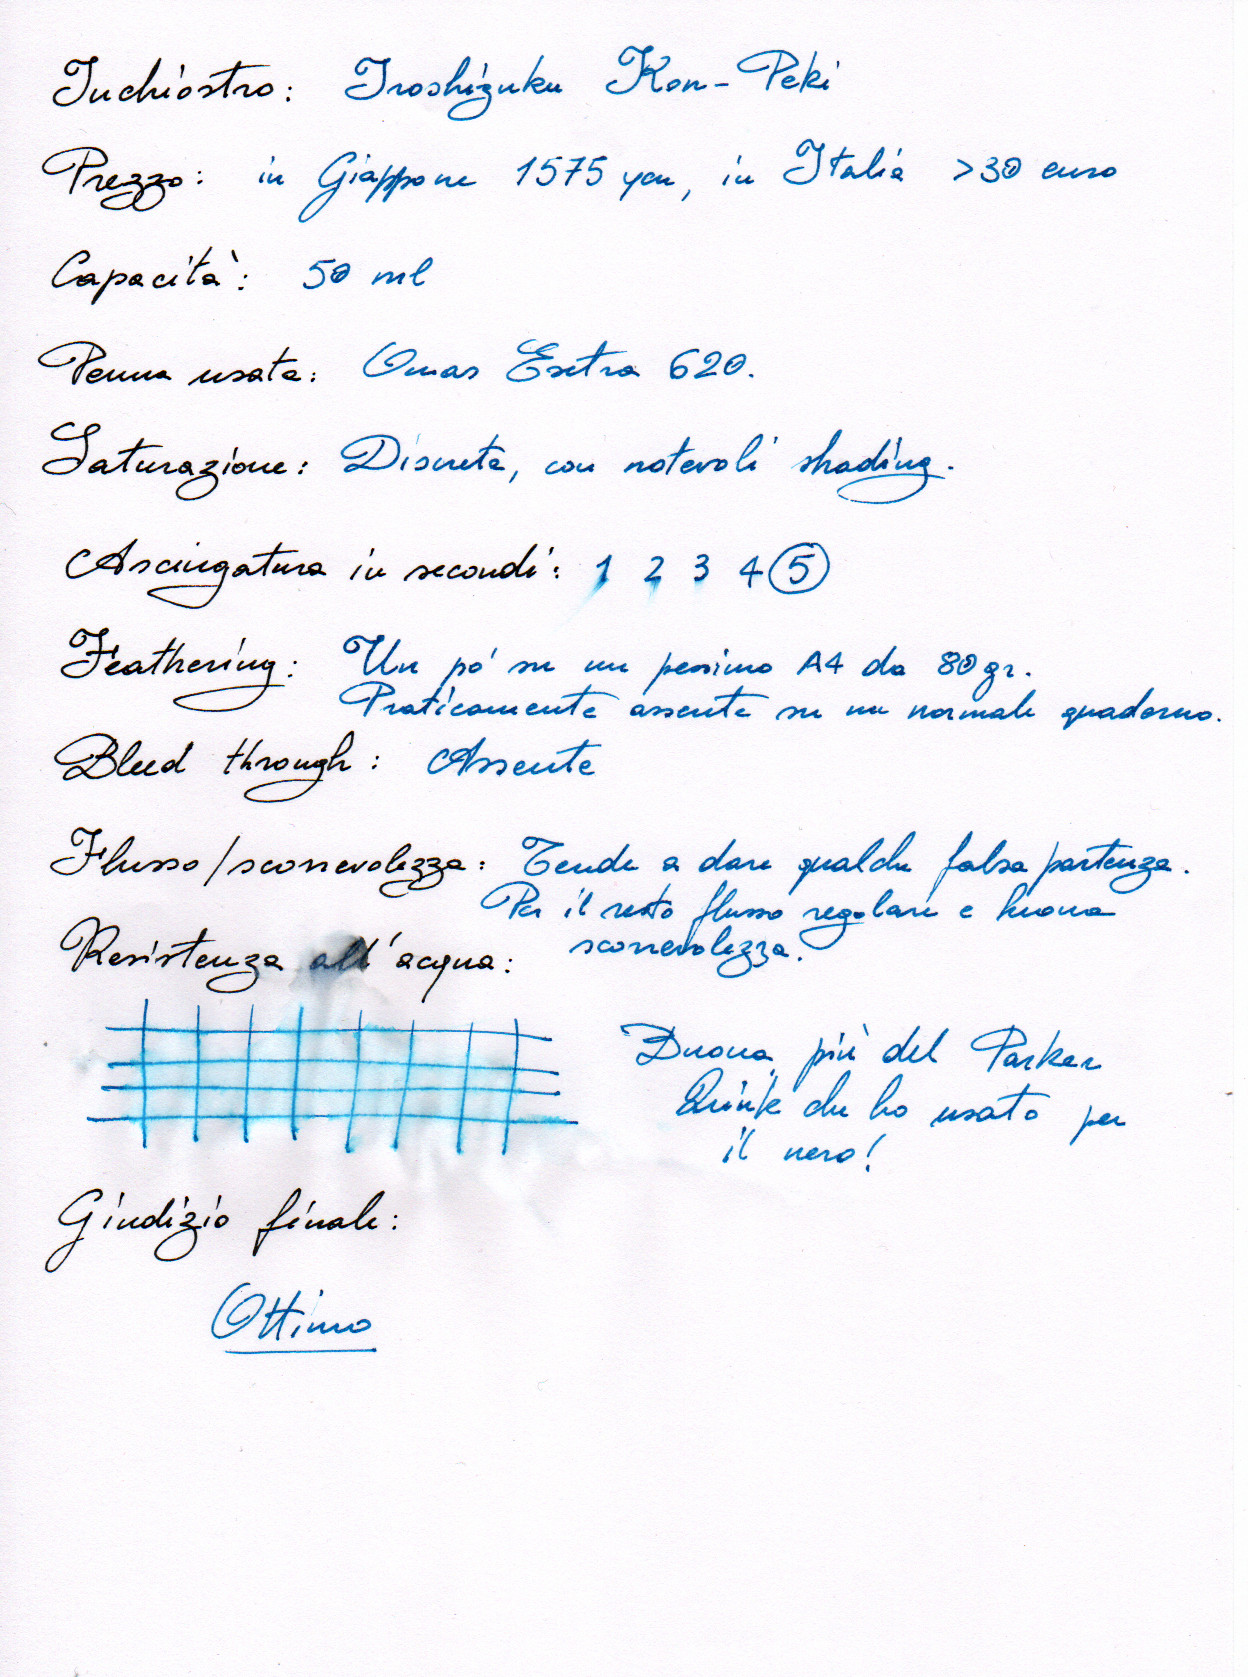 Inchiostro: Iroshizuku Kon-Peki
Prezzo: in Giappone 1575 yen, in Italia >30 euro
Capacità: 50 ml
Penna usata: Omas Extra 620.
Saturazione: Discreta, con notevoli shading.
Asciugatura in secondi: 1 2 3 4 5
Feathering: Un pó su un pessimo A4 da 80gr.
Praticamente assente su un normale quaderno.
Bleed through: Assente
Flusso/scorrevolezza: Tende a dare qualche falsa partenza.
Per il resto flusso regolare e buona
scorrevolezza.
Resistenza all'acqua:
Buona, più del Parker
Quink che ho usato per
il nero!
Giudizio finale:
Ottimo